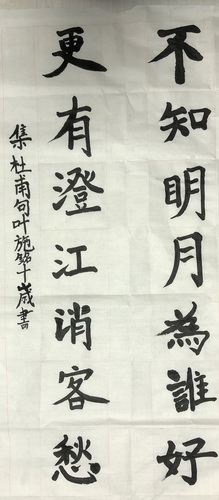 不知明月為誰好
更有澄江消客愁
集杜甫句叶施銘十歲書